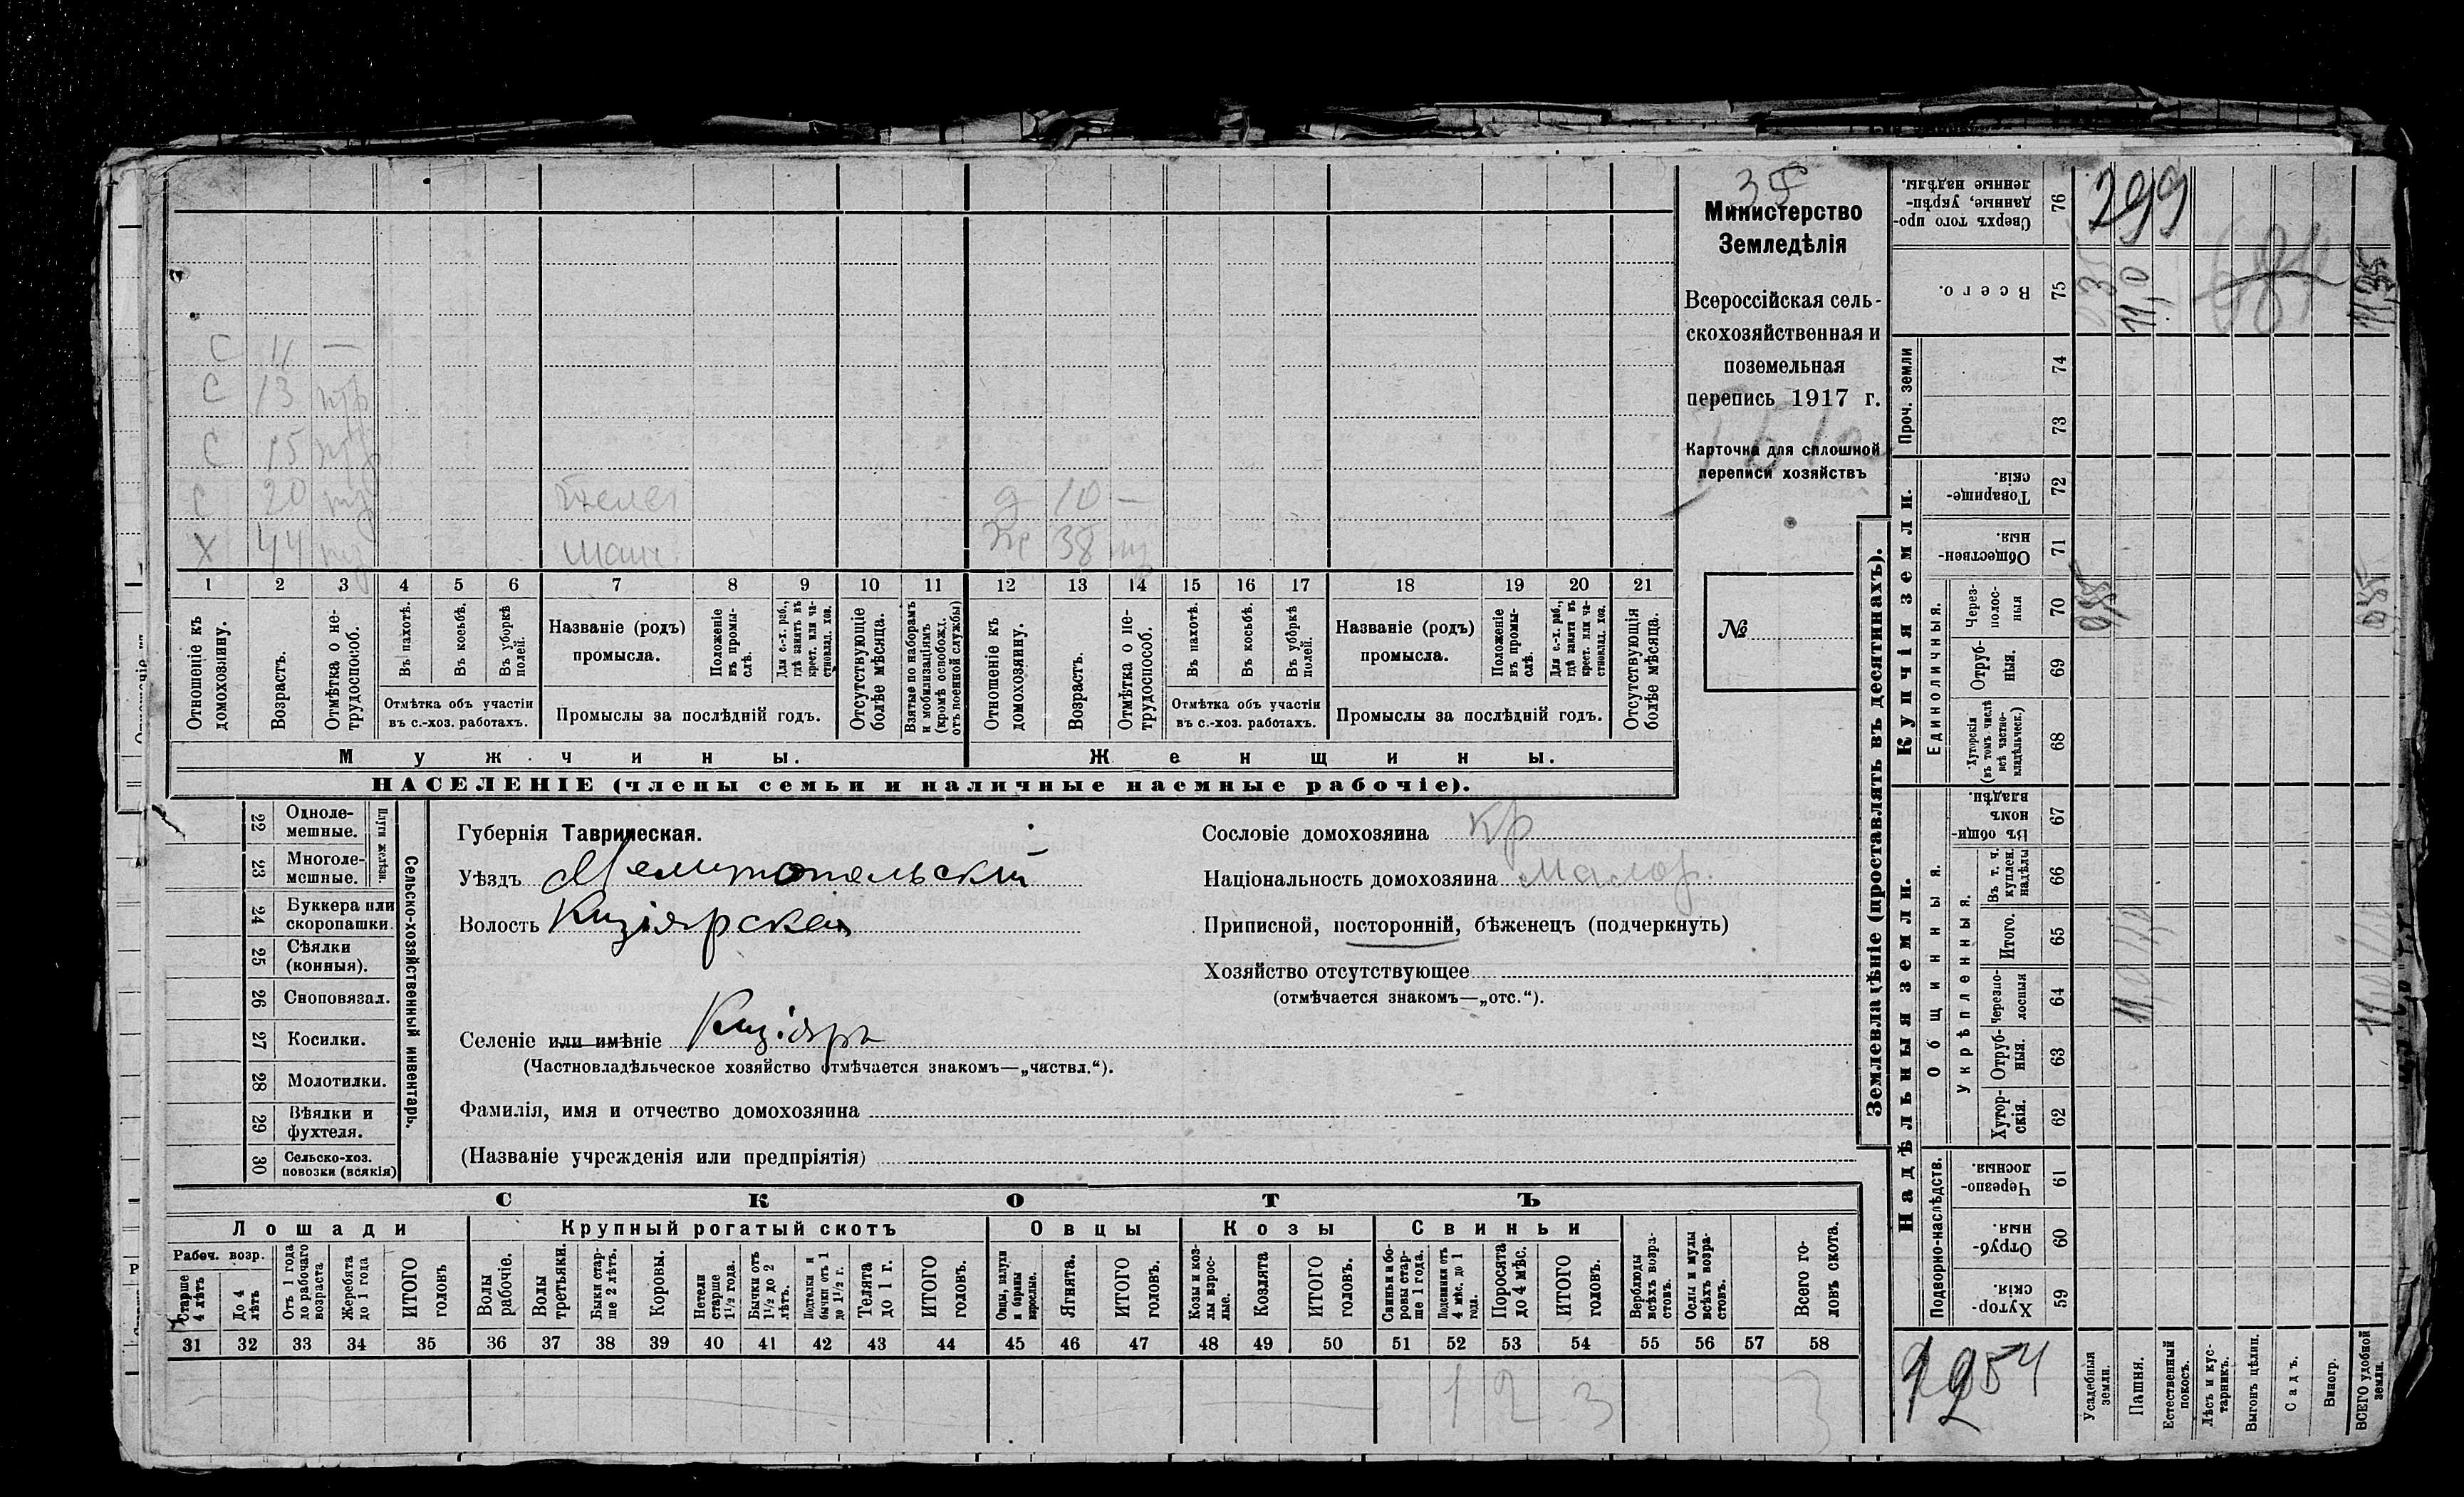 35
Министерство
Земледѣлія
Всероссійская сель-
скохозяйственная и
поземельная
перепись 1917 г.
Карточка для сплошной
переписи хозяйствъ
№
С 11 —
С 13 нр
С 15 нр
С 20 нр
Х 44 нр
д 10 —
Ж 38 нр
1 2 3 4 5 6 7 8 9 10 11 12 13 14 15 16 17 18 19 20 21
Отношеніе къ домохозяину.
Возрастъ.
Отмѣтка о не-трудоспособ.
Въ пахотѣ.
Въ косьбѣ.
Въ уборкѣ полей.
Отмѣтка объ участіи въ с.-хоз. работахъ.
Названіе (родъ) промысла.
Положеніе въ промы-слѣ.
Для с.-х. раб., гдѣ занятъ въ крест. или ча-стновлад. хоз.
Промыслы за послѣдній годъ.
Отсутствующіе болѣе мѣсяца.
Взятые по наборамъ и мобилизаціямъ (кромѣ освобожд. отъ военной службы)
Отношеніе къ домохозяину.
Возрастъ.
Отмѣтка о не-трудоспособ.
Въ пахотѣ.
Въ косьбѣ.
Въ уборкѣ полей.
Отмѣтка объ участіи въ с.-хоз. работахъ.
Названіе (родъ) промысла.
Положеніе въ промы-слѣ.
Для с.-х. раб., гдѣ занята въ крест. или ча-стновлад. хоз.
Промыслы за послѣдній годъ.
Отсутствующія болѣе мѣсяца.
Мужчины.
Женщины.
НАСЕЛЕНІЕ (члены семьи и наличные наемные рабочіе).
22 Одноле-мешные.
23 Многоле-мешные.
Плуги желѣзн.
24 Буккера или скоропашки.
25 Сѣялки (конныя).
26 Сноповязал.
27 Косилки.
28 Молотилки.
29 Вѣялки и фухтеля.
30 Сельско-хоз. повозки (всякія)
Сельско-хозяйственный инвентарь.
Губернія Таврическая.
Уѣздъ Мелитопольскій
Волость Кизіярская
Селеніе или имѣніе Кизіяръ
(Частновладѣльческое хозяйство отмѣчается знакомъ—„частвл.“).
Фамилія, имя и отчество домохозяина
(Названіе учрежденія или предпріятія)
Сословіе домохозяина Кр
Національность домохозяина Малор.
Приписной, посторонній, бѣженецъ (подчеркнуть)
Хозяйство отсутствующее
(отмѣчается знакомъ—„отс.“).
СКОТЪ
Лошади
Крупный рогатый скотъ
Овцы
Козы
Свиньи
Рабоч. возр.
Старше 4 лѣтъ
До 4 лѣтъ
Отъ 1 года до рабочаго возраста
Жеребята до 1 года
ИТОГО головъ
Волы рабочіе.
Волы третьяки.
Быки стар-ше 2 лѣтъ.
Коровы.
Нетели старше 1½ года.
Бычки отъ 1½ до 2 лѣтъ.
Подтелки и бычки отъ 1 до 1½ г.
Телята до 1 г.
ИТОГО головъ.
Овцы, валухи и бараны взрослые.
Ягнята.
ИТОГО головъ.
Козы и коз-лы взрос-лые.
Козлята
ИТОГО головъ.
Свиньи и бо-ровы стар-ше 1 года.
Подсвинки отъ 4 мѣс. до 1 года.
Поросята до 4 мѣс.
ИТОГО головъ.
Верблюды всѣхъ возра-стовъ.
Ослы и мулы всѣхъ возра-стовъ.
Всего го-ловъ скота.
31 32 33 34 35 36 37 38 39 40 41 42 43 44 45 46 47 48 49 50 51 52 53 54 55 56 57 58
1 2 3 3
Землевладѣніе (проставлять въ десятинахъ).
Купчія земли.
Надѣльныя земли.
Проч. земли
Единоличныя.
Общинныя.
Укрѣпленныя.
Подворно-наслѣдств.
Сверхъ того про-данные, укрѣп-ленные надѣлы. 76
Всего. 75
74
73
Товарище-скія. 72
Обществен-ныя. 71
Через-полос-ныя 70
Отруб-ныя. 69
Хуторскія (въ томъ числѣ всѣ частно-владѣльческ.) 68
Въ общин-номъ владѣн. 67
Въ т. ч. куплен. надѣлы 66
Итого. 65
Черезпо-лосныя 64
Отруб-ныя. 63
Хутор-скія. 62
Черезпо-лосныя. 61
Отруб-ныя. 60
Хутор-скія. 59
Усадебныя земли.
Пашня.
Естественный покосъ.
Лѣсъ и кус-тарникъ.
Выгонъ цѣлин.
Садъ.
Виногр.
ВСЕГО удобной земли.
299
11,0
11,35